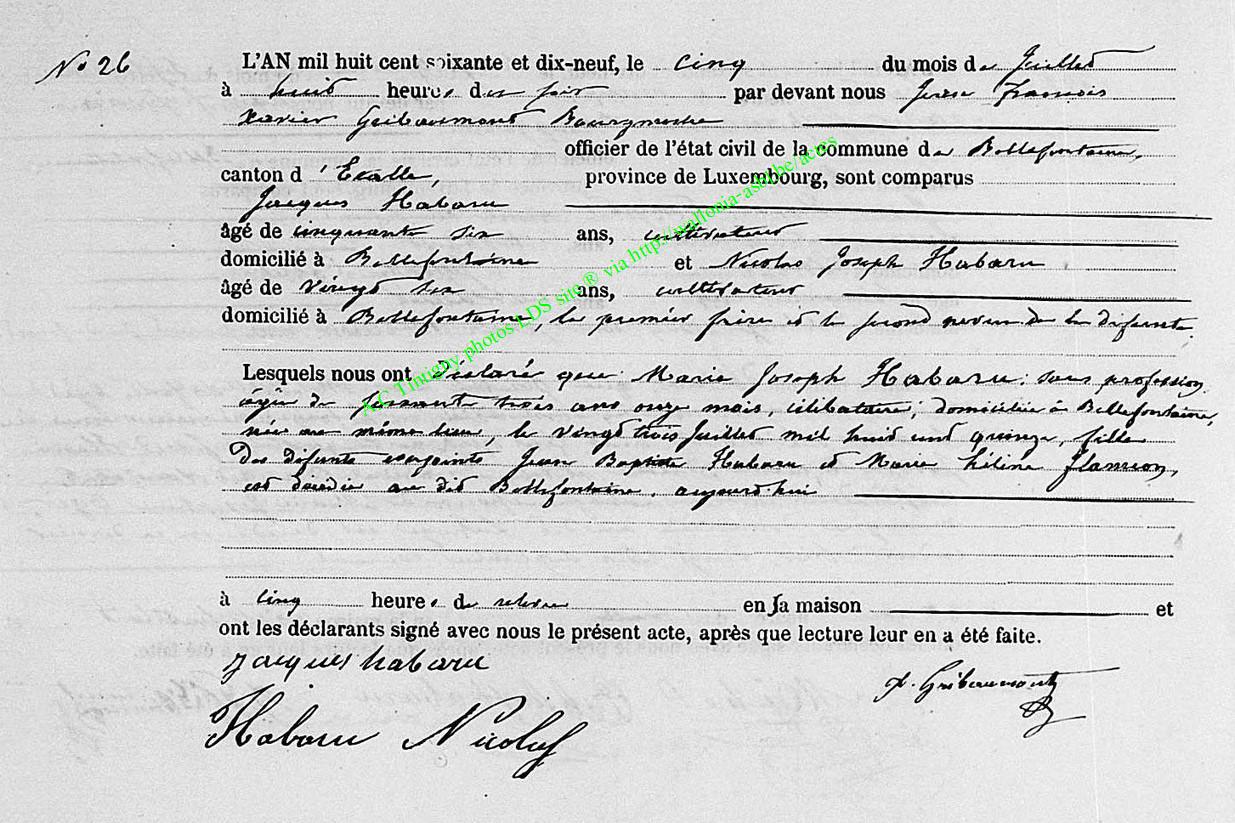 No 26
L'AN mil huit cent soixante et dix-neuf, le cinq du mois de Juillet
à huit heures du soir par devant nous Jean François
Xavier Gribaumont Bourgmestre
officier de l'état civil de la commune de Bellefontaine,
canton d'Etalle, province de Luxembourg, sont comparus
Jacques Habaru
âgé de cinquante six ans, cultivateur
domicilié à Bellefontaine et Nicolas Joseph Habaru
âgé de vingt six ans, cultivateur
domicilié à Bellefontaine, le premier frère et le second neveu de la défunte
Lesquels nous ont déclaré que Marie Joseph Habaru, sans profession,
âgée de soixante trois ans onze mois, célibataire, domiciliée à Bellefontaine,
née au même lieu, le vingt trois Juillet mil huit cent quinze, fille
des défunts conjoints Jean Baptiste Habaru et Marie Hélène Flamion,
est décédée au dit Bellefontaine, aujourd'hui
à cinq heures de relevée en sa maison et
ont les déclarants signé avec nous le présent acte, après que lecture leur en a été faite.
Jacques habaru
Habaru Nicolas
x. Gribaumont
A.C Tintigny photos LDS site ® via http://wallonia-asbl.be/actes